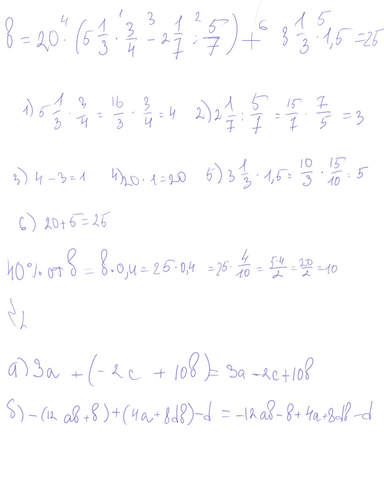 b = 20 · (5 1/3 · 3/4 - 2 1/7 : 5/7) + 3 1/3 · 1,5 = 25
1) 5 1/3 · 3/4 = 16/3 · 3/4 = 4   2) 2 1/7 : 5/7 = 15/7 · 7/5 = 3
3) 4 - 3 = 1   4) 20 · 1 = 20   5) 3 1/3 · 1,5 = 10/3 · 15/10 = 5
6) 20 + 5 = 25
40% от b = b · 0,4 = 25 · 0,4 = 25 · 4/10 = 5·4/2 = 20/2 = 10
а) 3a + (-2c + 10b) = 3a - 2c + 10b
б) -(12ab + 8) + (4a + 8db) - d = -12ab - 8 + 4a + 8db - d